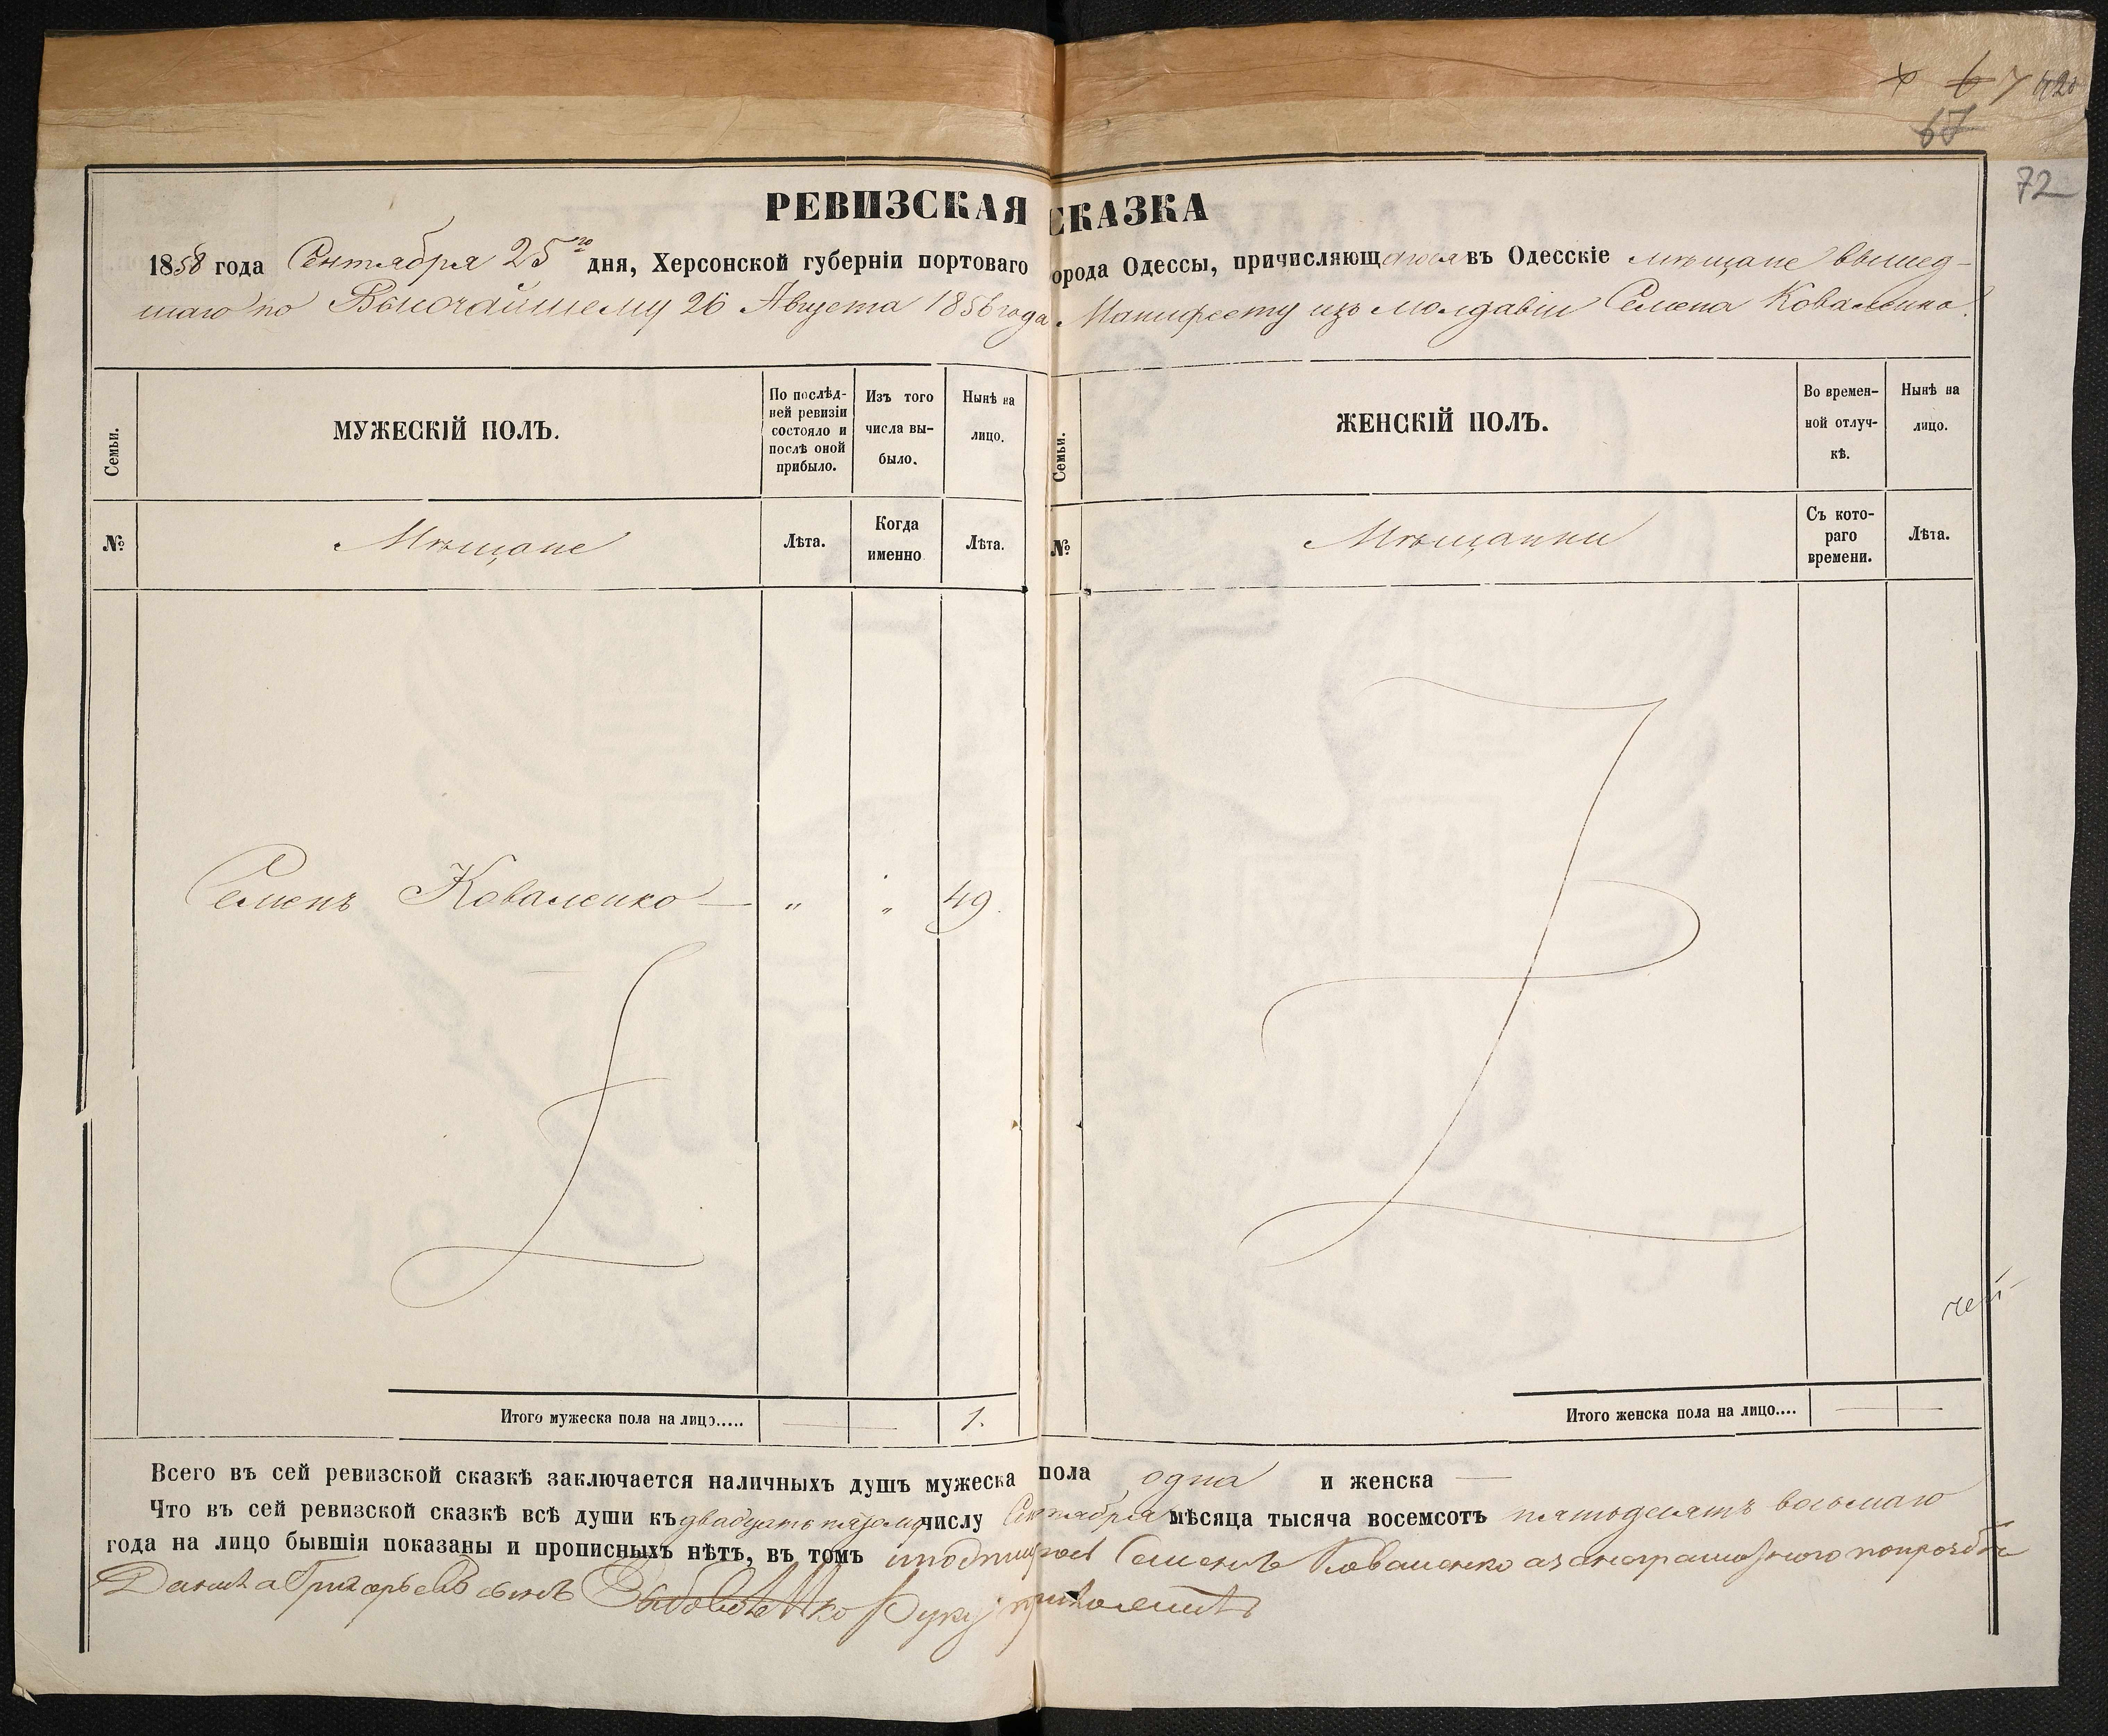 67
72
РЕВИЗСКАЯ СКАЗКА
1858 года Сентября 25го дня, Херсонской губерніи портоваго города Одессы, причисляющагося въ Одесскіе мѣщане вышед-
шаго по Высочайшему 26 Августа 1856 года Манифесту изъ Молдавіи Семена Коваленко.
Семьи.
МУЖЕСКІЙ ПОЛЪ.
По послѣд-
ней ревизіи
состояло и
послѣ оной
прибыло.
Изъ того
числа вы-
было.
Нынѣ на
лицо.
Семьи.
ЖЕНСКІЙ ПОЛЪ.
Во времен-
ной отлуч-
кѣ.
Нынѣ на
лицо.
№
Мѣщане
Лѣта.
Когда
именно
Лѣта.
№
Мѣщанки
Съ кото-
раго
времени.
Лѣта.
Семенъ Коваленко — „ „ 49.
Итого мужеска пола на лицо..... — 1.
Итого женска пола на лицо.... —
Всего въ сей ревизской сказкѣ заключается наличныхъ душъ мужеска пола одна и женска —
Что въ сей ревизской сказкѣ всѣ души къ двадцать пятому числу Сентября мѣсяца тысяча восемсотъ пятьдесятъ восьмаго
года на лицо бывшія показаны и прописныхъ нѣтъ, въ томъ Семенъ Коваленко
Григорьевъ сынъ руку приложилъ